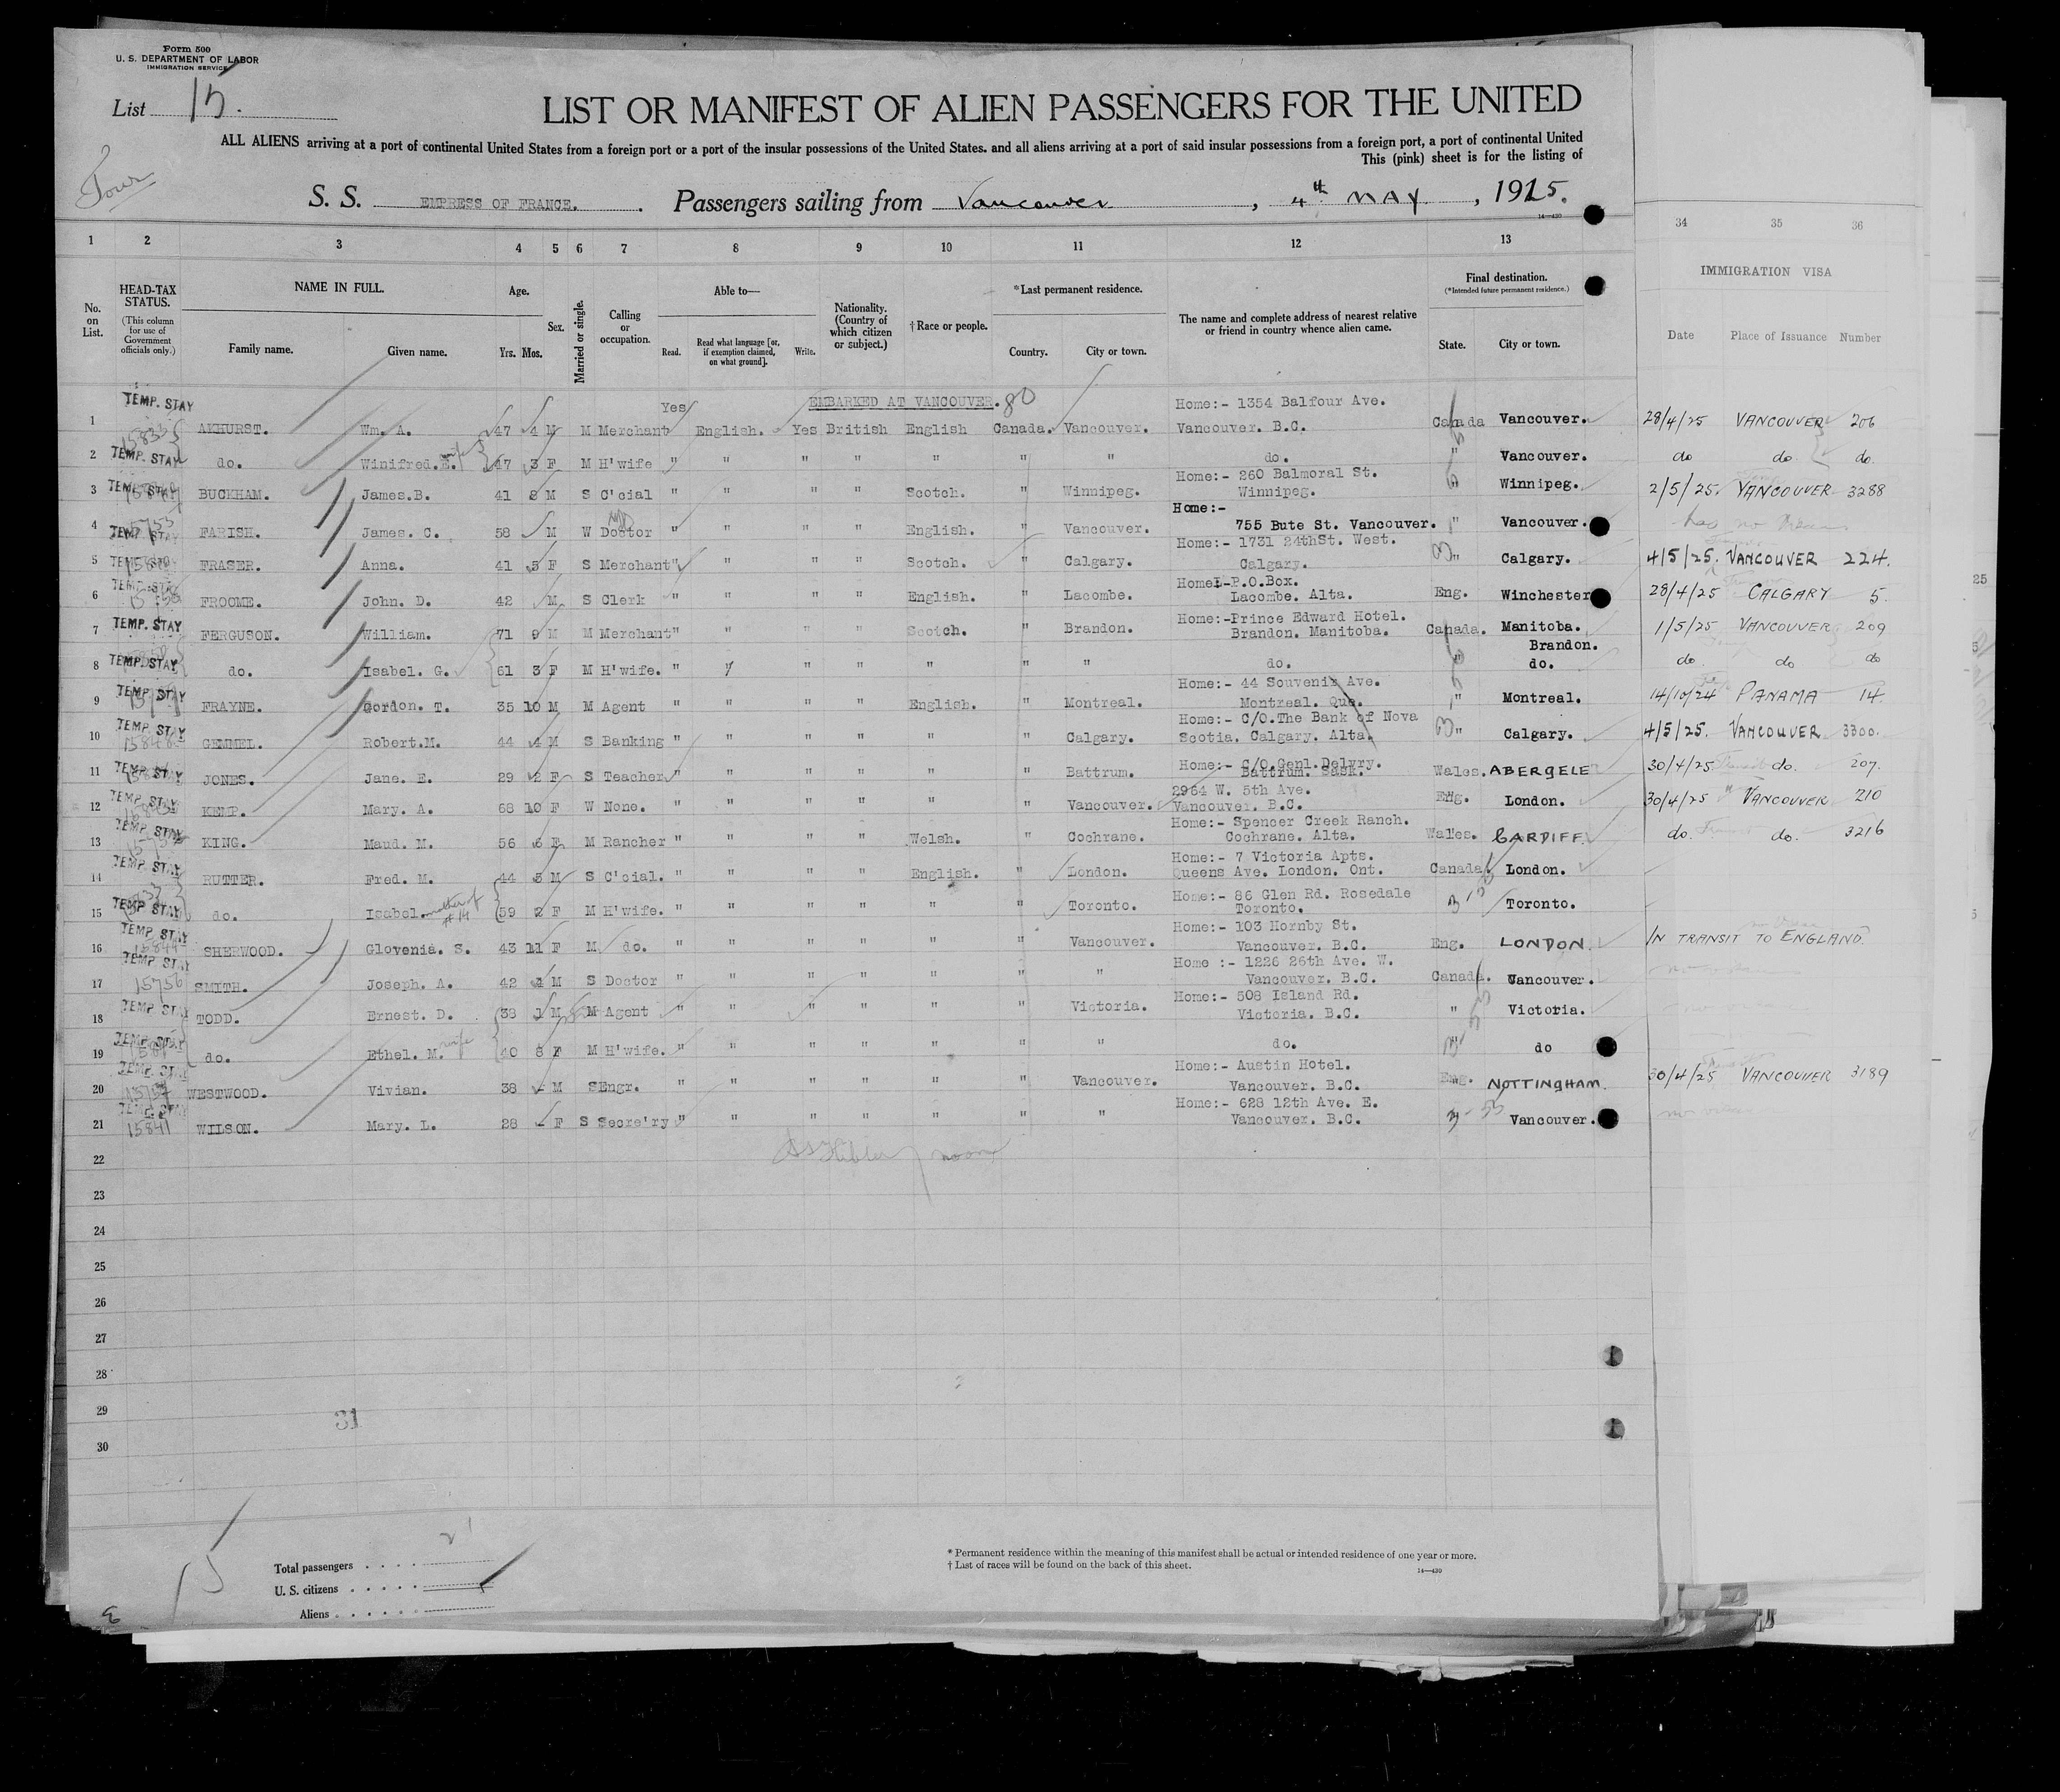 Form 500
U. S. DEPARTMENT OF LABOR
IMMIGRATION SERVICE
List 15.
LIST OR MANIFEST OF ALIEN PASSENGERS FOR THE UNITED
ALL ALIENS arriving at a port of continental United States from a foreign port or a port of the insular possessions of the United States, and all aliens arriving at a port of said insular possessions from a foreign port, a port of continental United
This (pink) sheet is for the listing of
Tour
S. S. EMPRESS OF FRANCE. Passengers sailing from Vancouver, 4th MAY, 1925.
14—430
1 2 3 4 5 6 7 8 9 10 11 12 13 34 35 36
No. on List.
HEAD-TAX STATUS.
(This column for use of Government officials only.)
NAME IN FULL.
Family name. Given name.
Age.
Yrs. Mos.
Sex.
Married or single.
Calling or occupation.
Able to—
Read. Read what language [or, if exemption claimed, on what ground]. Write.
Nationality. (Country of which citizen or subject.)
† Race or people.
*Last permanent residence.
Country. City or town.
The name and complete address of nearest relative or friend in country whence alien came.
Final destination.
(*Intended future permanent residence.)
State. City or town.
IMMIGRATION VISA
Date Place of Issuance Number
EMBARKED AT VANCOUVER. 80
1 TEMP. STAY AKHURST. Wm. A. 47 4 M M Merchant Yes English. Yes British English Canada. Vancouver. Home:- 1354 Balfour Ave. Vancouver. B.C. Canada Vancouver. 28/4/25 VANCOUVER 206
2 TEMP. STAY do. Winifred.E. wife 47 3 F M H'wife " " " " " " " do. " Vancouver. do do. do.
3 TEMP. STAY BUCKHAM. James.B. 41 8 M S C'cial " " " " Scotch. " Winnipeg. Home:- 260 Balmoral St. Winnipeg. " Winnipeg. 2/5/25. VANCOUVER 3288
4 TEMP. STAY FARISH. James. C. 58 M W Doctor " " " " English. " Vancouver. Home:- 755 Bute St. Vancouver. " Vancouver.
5 TEMP. STAY FRASER. Anna. 41 5 F S Merchant " " " " Scotch. " Calgary. Home:- 1731 24thSt. West. Calgary. " Calgary. 4/5/25. VANCOUVER 224.
6 TEMP. STAY FROOME. John. D. 42 M S Clerk " " " " English. " Lacombe. Home:-P.O.Box. Lacombe. Alta. Eng. Winchester 28/4/25 CALGARY 5.
7 TEMP. STAY FERGUSON. William. 71 9 M M Merchant " " " " Scotch. " Brandon. Home:-Prince Edward Hotel. Brandon. Manitoba. Canada. Manitoba. Brandon. 1/5/25 VANCOUVER 209
8 TEMP. STAY do. Isabel. G. 61 3 F M H'wife. " " " " " " " do. " do. do. do do
9 TEMP. STAY FRAYNE. Gordon. T. 35 10 M M Agent " " " " English. " Montreal. Home:- 44 Souvenir Ave. Montreal. Que. " Montreal. 14/10/24 PANAMA 14.
10 TEMP. STAY GEMMEL. Robert.M. 44 4 M S Banking " " " " " " Calgary. Home:- C/O.The Bank of Nova Scotia. Calgary. Alta. " Calgary. 4/5/25. VANCOUVER 3300.
11 TEMP. STAY JONES. Jane. E. 29 2 F S Teacher " " " " " " Battrum. Home:- C/O.Genl.Delvry. Battrum. Sask. Wales. ABERGELE 30/4/25 do. 207.
12 TEMP. STAY KEMP. Mary. A. 68 10 F W None. " " " " " " Vancouver. 2954 W. 5th Ave. Vancouver. B.C. Eng. London. 30/4/25 VANCOUVER 210
13 TEMP. STAY KING. Maud. M. 56 6 F M Rancher " " " " Welsh. " Cochrane. Home:- Spencer Creek Ranch. Cochrane. Alta. Wales. CARDIFF do. do. 3216
14 TEMP. STAY RUTTER. Fred. M. 44 5 M S C'cial. " " " " English. " London. Home:- 7 Victoria Apts. Queens Ave. London. Ont. Canada London.
15 TEMP. STAY do. Isabel. mother of #14 59 2 F M H'wife. " " " " " " Toronto. Home:- 86 Glen Rd. Rosedale Toronto. Toronto.
16 TEMP. STAY SHERWOOD. Glovenia. S. 43 11 F M do. " " " " " " Vancouver. Home:- 103 Hornby St. Vancouver. B.C. Eng. LONDON. IN TRANSIT TO ENGLAND.
17 TEMP. STAY 15756 SMITH. Joseph. A. 42 4 M S Doctor " " " " " " " Home :- 1226 26th Ave. W. Vancouver. B.C. Canada. Vancouver.
18 TEMP. STAY TODD. Ernest. D. 38 1 M M Agent " " " " " " Victoria. Home:- 508 Island Rd. Victoria. B.C. " Victoria.
19 TEMP. STAY do. Ethel. M. wife 40 8 F M H'wife. " " " " " " " do. " do
20 TEMP. STAY WESTWOOD. Vivian. 38 - M S Engr. " " " " " " Vancouver. Home:- Austin Hotel. Vancouver. B.C. Eng. NOTTINGHAM. 30/4/25 VANCOUVER 3189
21 TEMP. STAY 15841 WILSON. Mary. L. 28 - F S Secre'ry " " " " " " " Home:- 628 12th Ave. E. Vancouver. B.C. 3-55 Vancouver.
22
23
24
25
26
27
28
29
30
31
15
Total passengers 21
U. S. citizens
Aliens
* Permanent residence within the meaning of this manifest shall be actual or intended residence of one year or more.
† List of races will be found on the back of this sheet.
14—430